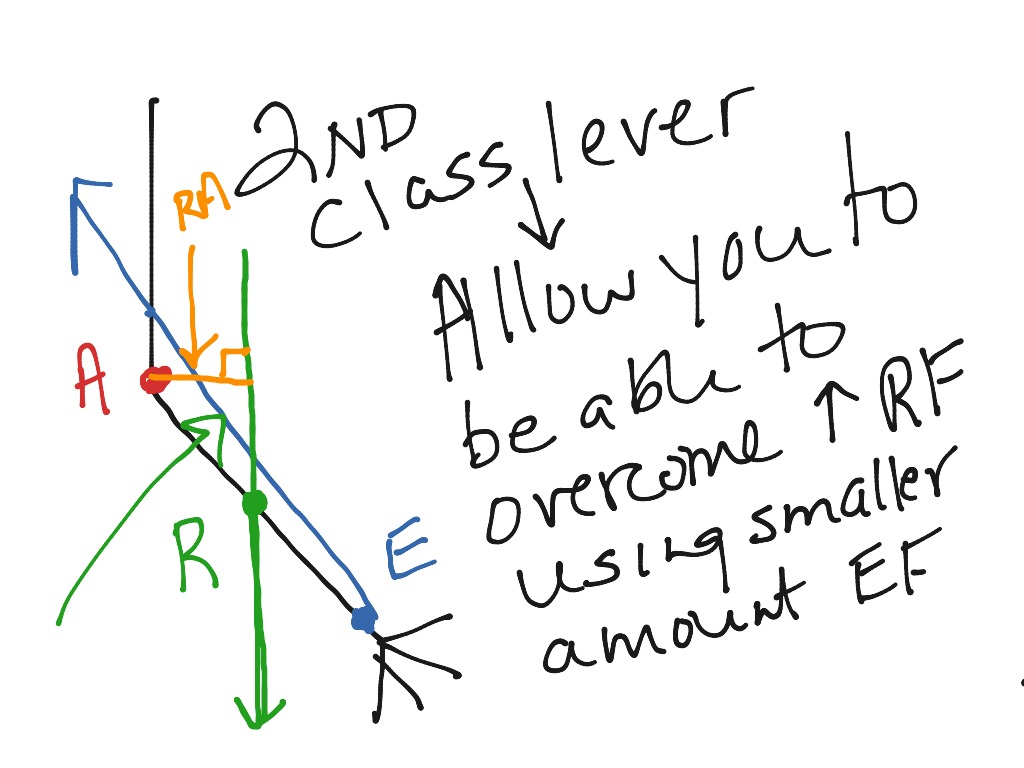 2ND
class lever
RA
Allow you to
A
be able to
overcome ↑ RF
R
E
using smaller
amount EF